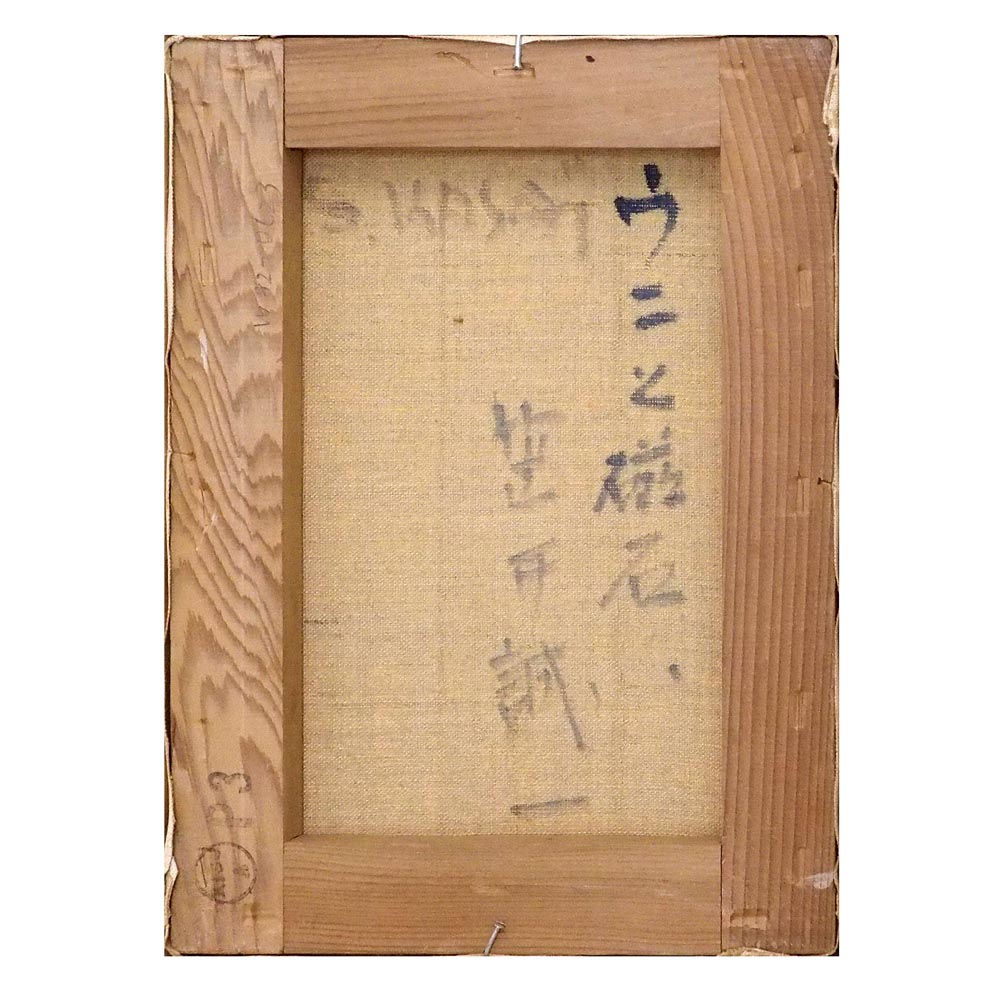 ウニと磁石.
笠井誠一
S. KASAI
P3